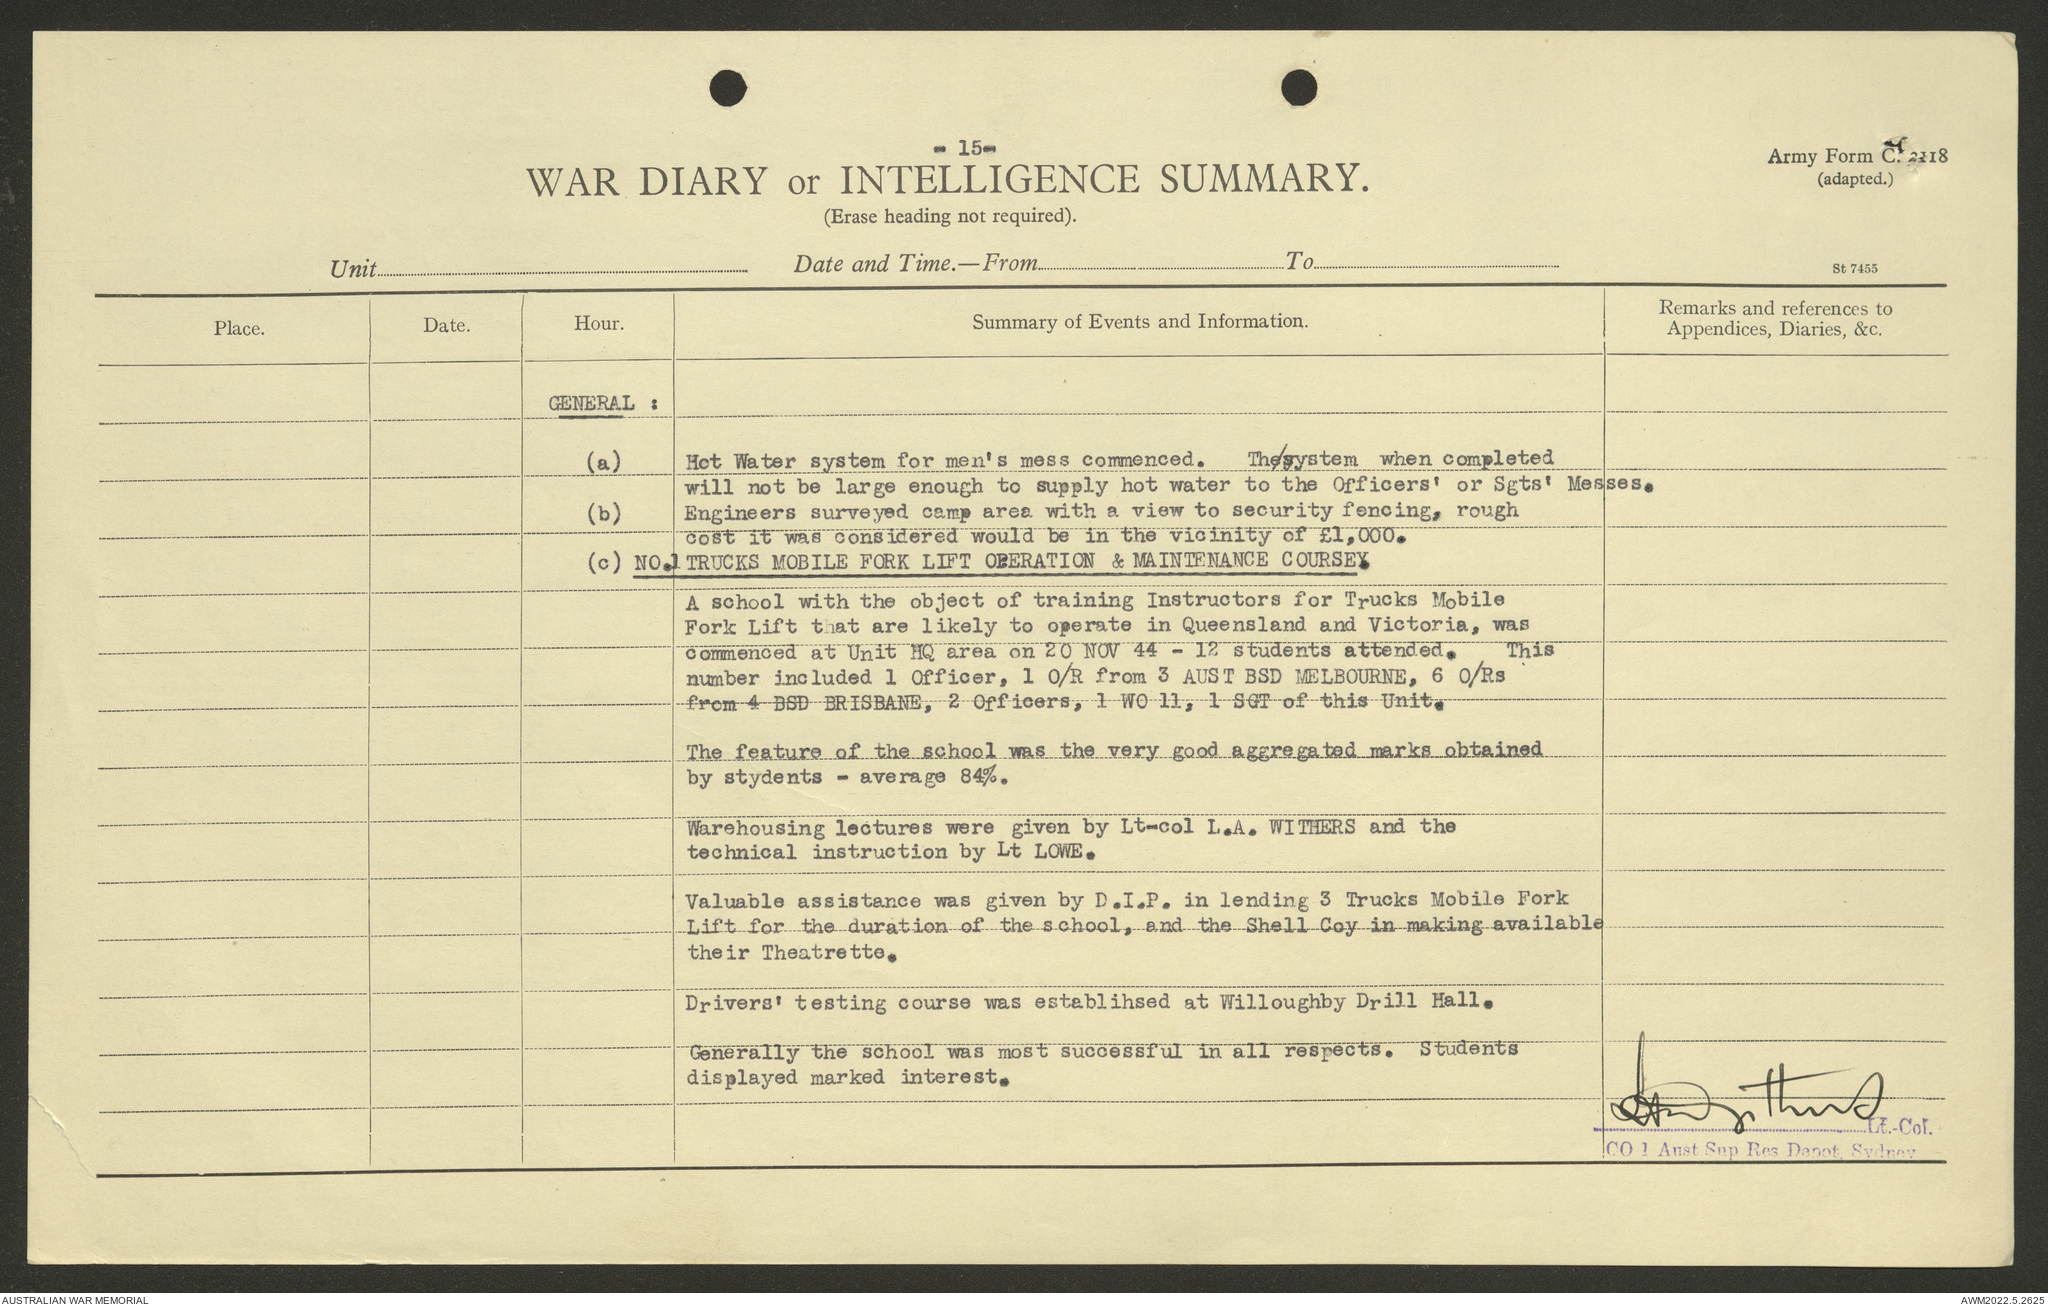 - 15-
Army Form C. 2118
(adapted.)
WAR DIARY or INTELLIGENCE SUMMARY.
(Erase heading not required).
Unit Date and Time.—From To
St 7455
Place. Date. Hour. Summary of Events and Information. Remarks and references to
Appendices, Diaries, &c.
GENERAL :
(a) Hot Water system for men's mess commenced. The/system when completed
will not be large enough to supply hot water to the Officers' or Sgts' Messes.
(b) Engineers surveyed camp area with a view to security fencing, rough
cost it was considered would be in the vicinity of £1,000.
(c) NO.1 TRUCKS MOBILE FORK LIFT OPERATION & MAINTENANCE COURSE.
A school with the object of training Instructors for Trucks Mobile
Fork Lift that are likely to operate in Queensland and Victoria, was
commenced at Unit HQ area on 20 NOV 44 - 12 students attended. This
number included 1 Officer, 1 O/R from 3 AUST BSD MELBOURNE, 6 O/Rs
from 4 BSD BRISBANE, 2 Officers, 1 WO 11, 1 SGT of this Unit.
The feature of the school was the very good aggregated marks obtained
by stydents - average 84%.
Warehousing lectures were given by Lt-col L.A. WITHERS and the
technical instruction by Lt LOWE.
Valuable assistance was given by D.I.P. in lending 3 Trucks Mobile Fork
Lift for the duration of the school, and the Shell Coy in making available
their Theatrette.
Drivers' testing course was establihsed at Willoughby Drill Hall.
Generally the school was most successful in all respects. Students
displayed marked interest.
Lt.-Col.
CO 1 Aust Sup Res Depot, Sydney
AUSTRALIAN WAR MEMORIAL
AWM2022.5.2625